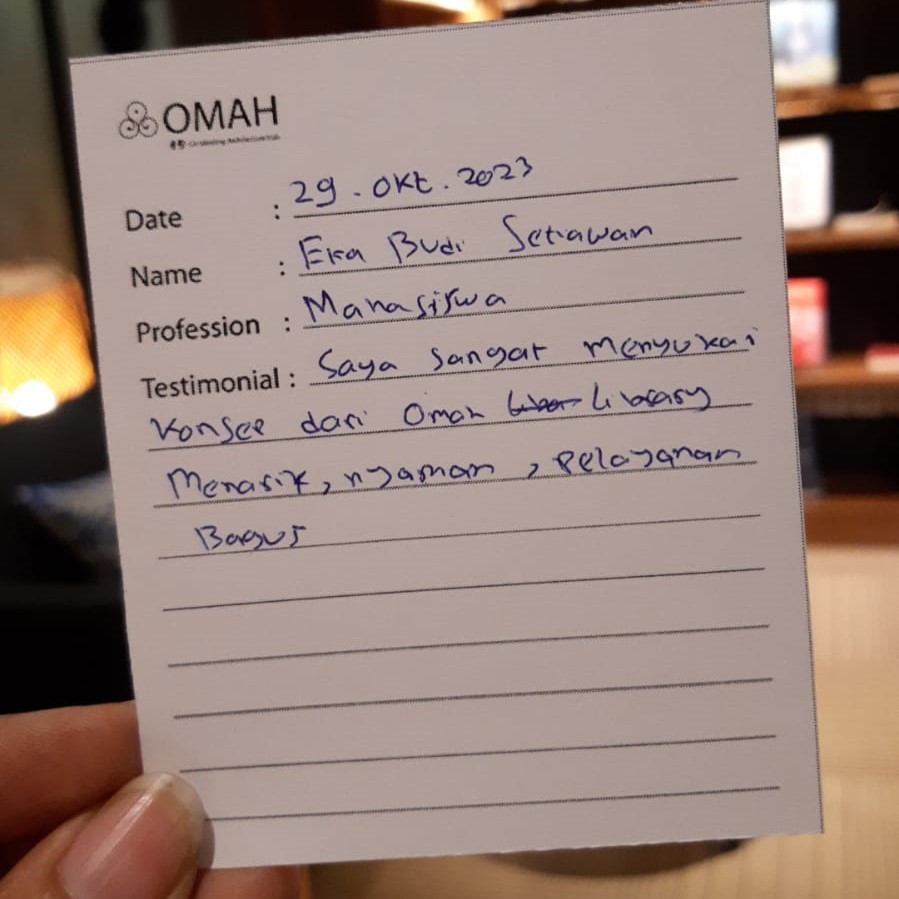 OMAH
Date : 29 . Okt . 2023
Name : Eka Budi Setiawan
Profession : Mahasiswa
Testimonial : Saya sangat menyukai
Konsep dari Omah Library
Menarik, nyaman, Pelayanan
Bagus